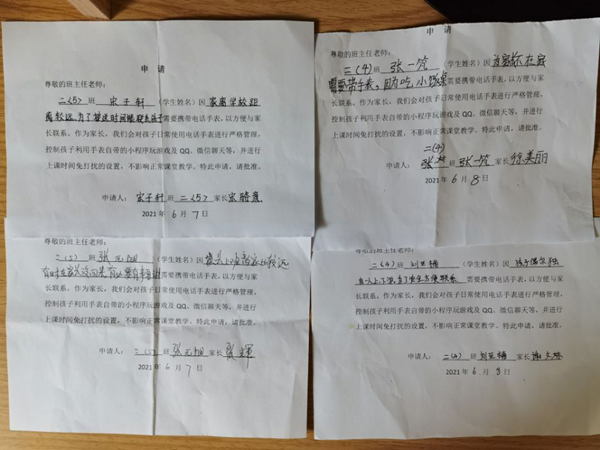 申 请
尊敬的班主任老师:
二(5) 班 宋子轩 (学生姓名) 因 家离学校距
离较远,为了 时间 需要携带电话手表,以方便与家
长联系。作为家长,我们会对孩子日常使用电话手表进行严格管理,
控制孩子利用手表自带的小程序玩游戏及 QQ、微信聊天等,并进行
上课时间免打扰的设置,不影响正常课堂教学。特此申请,请批准。
申请人: 宋子轩 班 二(5) 家长
2021 年 6 月 7 日
申 请
尊敬的班主任老师:
二(4) 班 张一 (学生姓名) 因 在
需要带手表,因为吃小饭桌需要携带电话手表,以方便与家
长联系。作为家长,我们会对孩子日常使用电话手表进行严格管理,
控制孩子利用手表自带的小程序玩游戏及 QQ、微信聊天等,并进行
上课时间免打扰的设置,不影响正常课堂教学。特此申请,请批准。
二(4)
申请人: 班 张一 家长 徐美丽
2021 年 6 月 8 日
尊敬的班主任老师:
二(5) 班 张元 (学生姓名) 因
有时 需要携带电话手表,以方便与家
长联系。作为家长,我们会对孩子日常使用电话手表进行严格管理,
控制孩子利用手表自带的小程序玩游戏及 QQ、微信聊天等,并进行
上课时间免打扰的设置,不影响正常课堂教学。特此申请,请批准。
申请人: 二(5) 班 张元 家长 张
2021 年 6 月 7 日
尊敬的班主任老师:
二(4) 班 刘 (学生姓名) 因 孩子偶尔独
自上下学,为了 方便联系 需要携带电话手表,以方便与家
长联系。作为家长,我们会对孩子日常使用电话手表进行严格管理,
控制孩子利用手表自带的小程序玩游戏及 QQ、微信聊天等,并进行
上课时间免打扰的设置,不影响正常课堂教学。特此申请,请批准。
申请人: 二(4) 班 刘 家长
2021 年 6 月 8 日